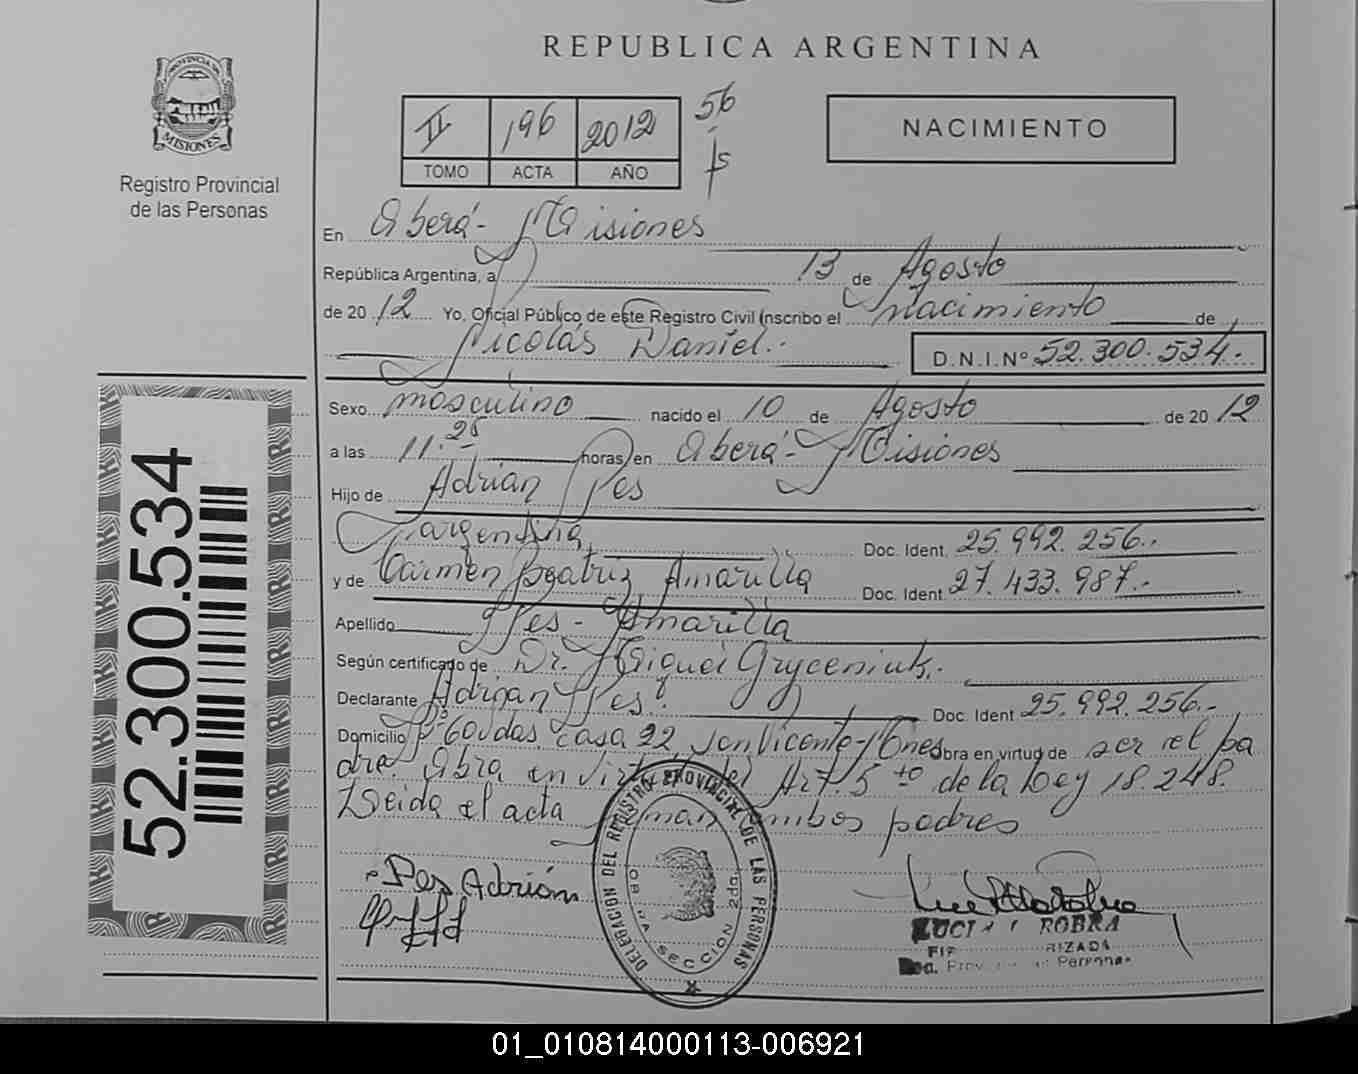 REPUBLICA ARGENTINA
PROVINCIA DE
MISIONES
Registro Provincial
de las Personas
II 196 2012 56
TOMO ACTA AÑO
NACIMIENTO
En Oberá - Misiones
República Argentina, a 13 de Agosto
de 2012 Yo, Oficial Público de este Registro Civil inscribo el nacimiento de
Nicolás Daniel.- D.N.I.Nº 52.300.534.-
Sexo masculino nacido el 10 de Agosto de 2012
a las 11.25 horas en Oberá - Misiones
Hijo de Adrián Pes
argentina Doc. Ident. 25.992.256.-
y de Carmen Beatriz Amarilla Doc. Ident. 27.433.987.-
Apellido Pes - Amarilla
Según certificado de Dr. Miguel Gryceniuk.
Declarante Adrian Pes. Doc. Ident 25.992.256.-
Domicilio casa 22, San Vicente - Mnes Obra en virtud de ser el pa
dre. Obra en virtud del Art. 5to de la Ley 18.248.
Leida el acta firman ambos padres
Pes Adrián
DELEGACION DEL REGISTRO PROVINCIAL DE LAS PERSONAS
OBERA SECCION 2da.
ROBRA
52.300.534
01_010814000113-006921